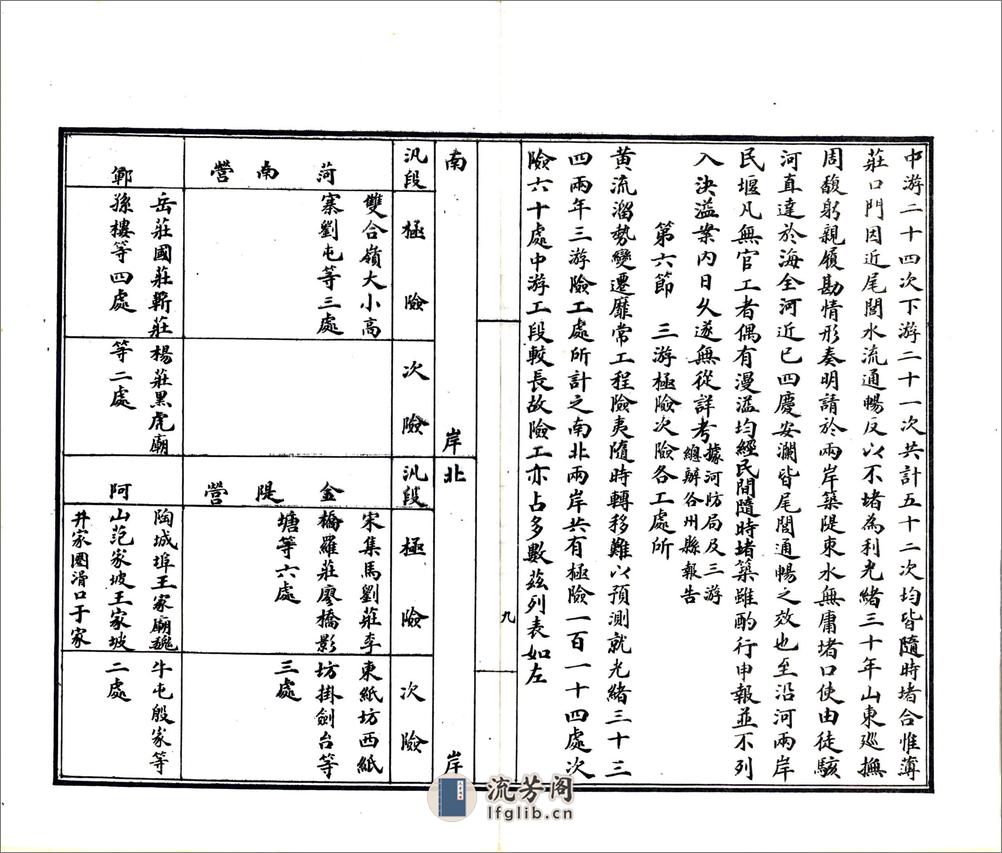 中游二十四次下游二十一次共計五十二次均皆隨時堵合惟薄
莊口門因近尾閭水流通暢反以不堵為利光緒三十年山東巡撫
周馥躬親履勘情形奏明請於兩岸築隄束水無庸堵口使由徒駭
河直達於海全河近已四慶安瀾皆尾閭通暢之效也至沿河兩岸
民堰凡無官工者偶有漫溢均經民間隨時堵築雖酌行申報並不列
入決溢案內日久遂無從詳考據河防局及三游
總辦各州縣報告
第六節　三游極險次險各工處所
黃流溜勢變遷靡常工程險夷隨時轉移難以預測就光緒三十三
四兩年三游險工處所計之南北兩岸共有極險一百一十四處次
險六十處中游工段較長故險工亦占多數茲列表如左
九
南岸
北岸
汛段
極險
次險
汛段
極險
次險
菏南營
雙合嶺大小高
寨劉屯等三處
金隄營
宋集馬劉莊李
橋羅莊廖橋影
塘等六處
東紙坊西紙
坊掛劍台等
三處
鄆
岳莊國莊靳莊
孫樓等四處
楊莊黑虎廟
等二處
阿
陶城埠王家廟魏
山范家坡王家坡
井家圈滑口于家
牛屯殷家等
二處
流芳阁
lfglib.cn